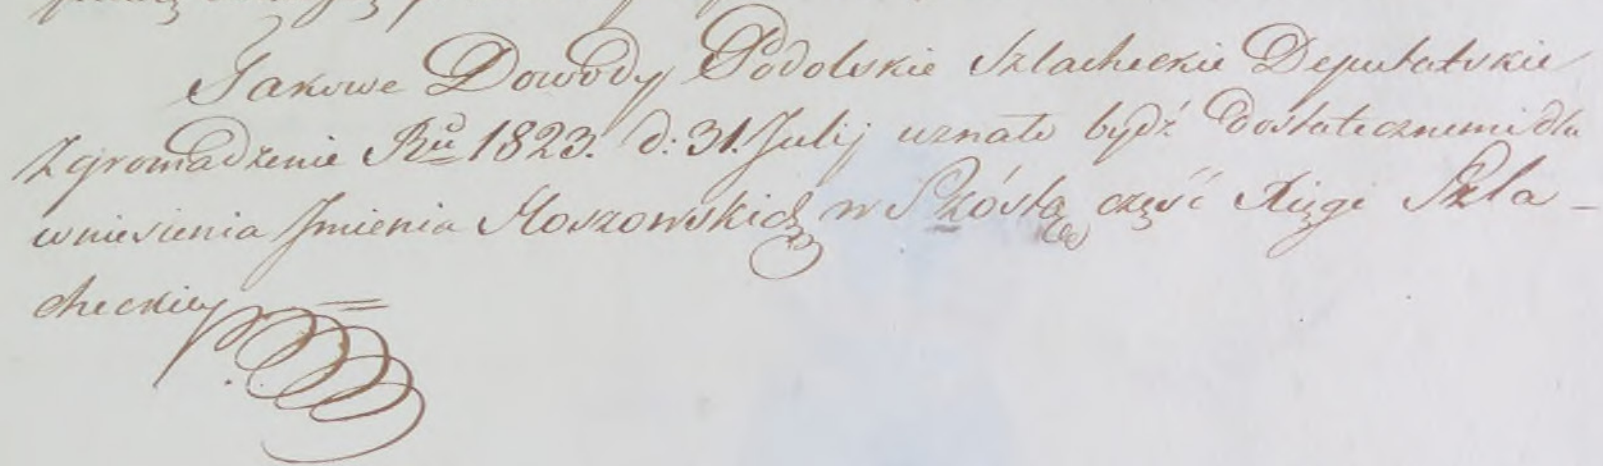 Takowe Dowody Podolskie Szlacheckie Deputatskie
Zgromadzenie Ru 1823. d: 31. Julij uznało bydź dostatecznemi dla
wniesienia Jmienia Moszowskich w Szóstą część Xięgi Szla-
checkiey